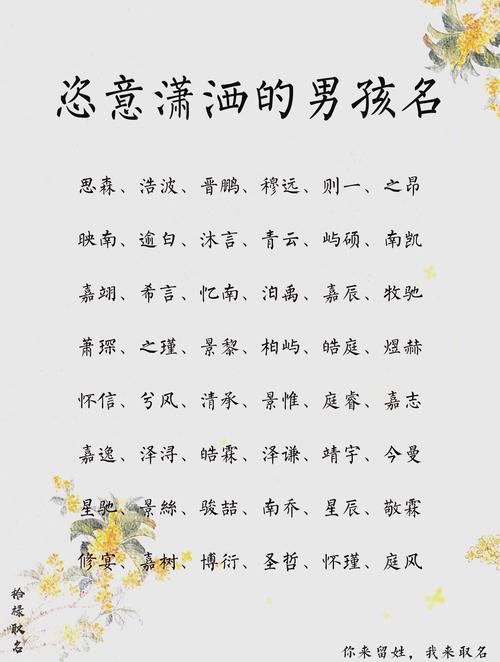 恣意潇洒的男孩名
思森、浩波、晋鹏、穆远、则一、之昂
映南、逾白、沐言、青云、屿硕、南凯
嘉翊、希言、忆南、泊禹、嘉辰、牧驰
萧琛、之瑾、景黎、柏屿、皓庭、煜赫
怀信、兮风、清承、景惟、庭睿、嘉志
嘉逸、泽浔、皓霖、泽谦、靖宇、今曼
星驰、景絲、骏喆、南乔、星辰、敬霖
修宴、嘉树、博衍、圣哲、怀瑾、庭风
拾禄取名
你来留姓，我来取名